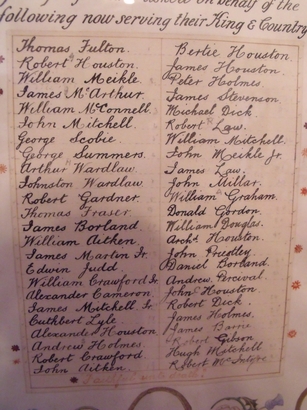 on behalf of the
following now serving their King & Country
Thomas Fulton.
Robert Houston.
William Meikle.
James McArthur.
William McConnell.
John Mitchell.
George Scobie.
George Summers.
Arthur Wardlaw.
Johnston Wardlaw
Robert Gardner.
Thomas Fraser.
James Borland.
William Aitken.
James Marten Jr.
Edwin Judd.
William Crawford Jr.
Alexander Cameron.
James Mitchell Jr.
Cuthbert Lyle
Alexander Houston
Andrew Holmes.
Robert Crawford.
John Aitken.
Bertie Houston.
James Houston.
Peter Holmes.
James Stevenson.
Michael Dick.
Robert Law.
William Mitchell.
John Meikle Jr.
James Law.
John Millar.
William Graham.
Donald Gordon.
William Douglas.
Archd Houston.
John
Daniel Borland.
Andrew Percival.
John Houston
Robert Dick.
James Holmes.
James Barrie
Robert Gibson
Hugh Mitchell
Robert